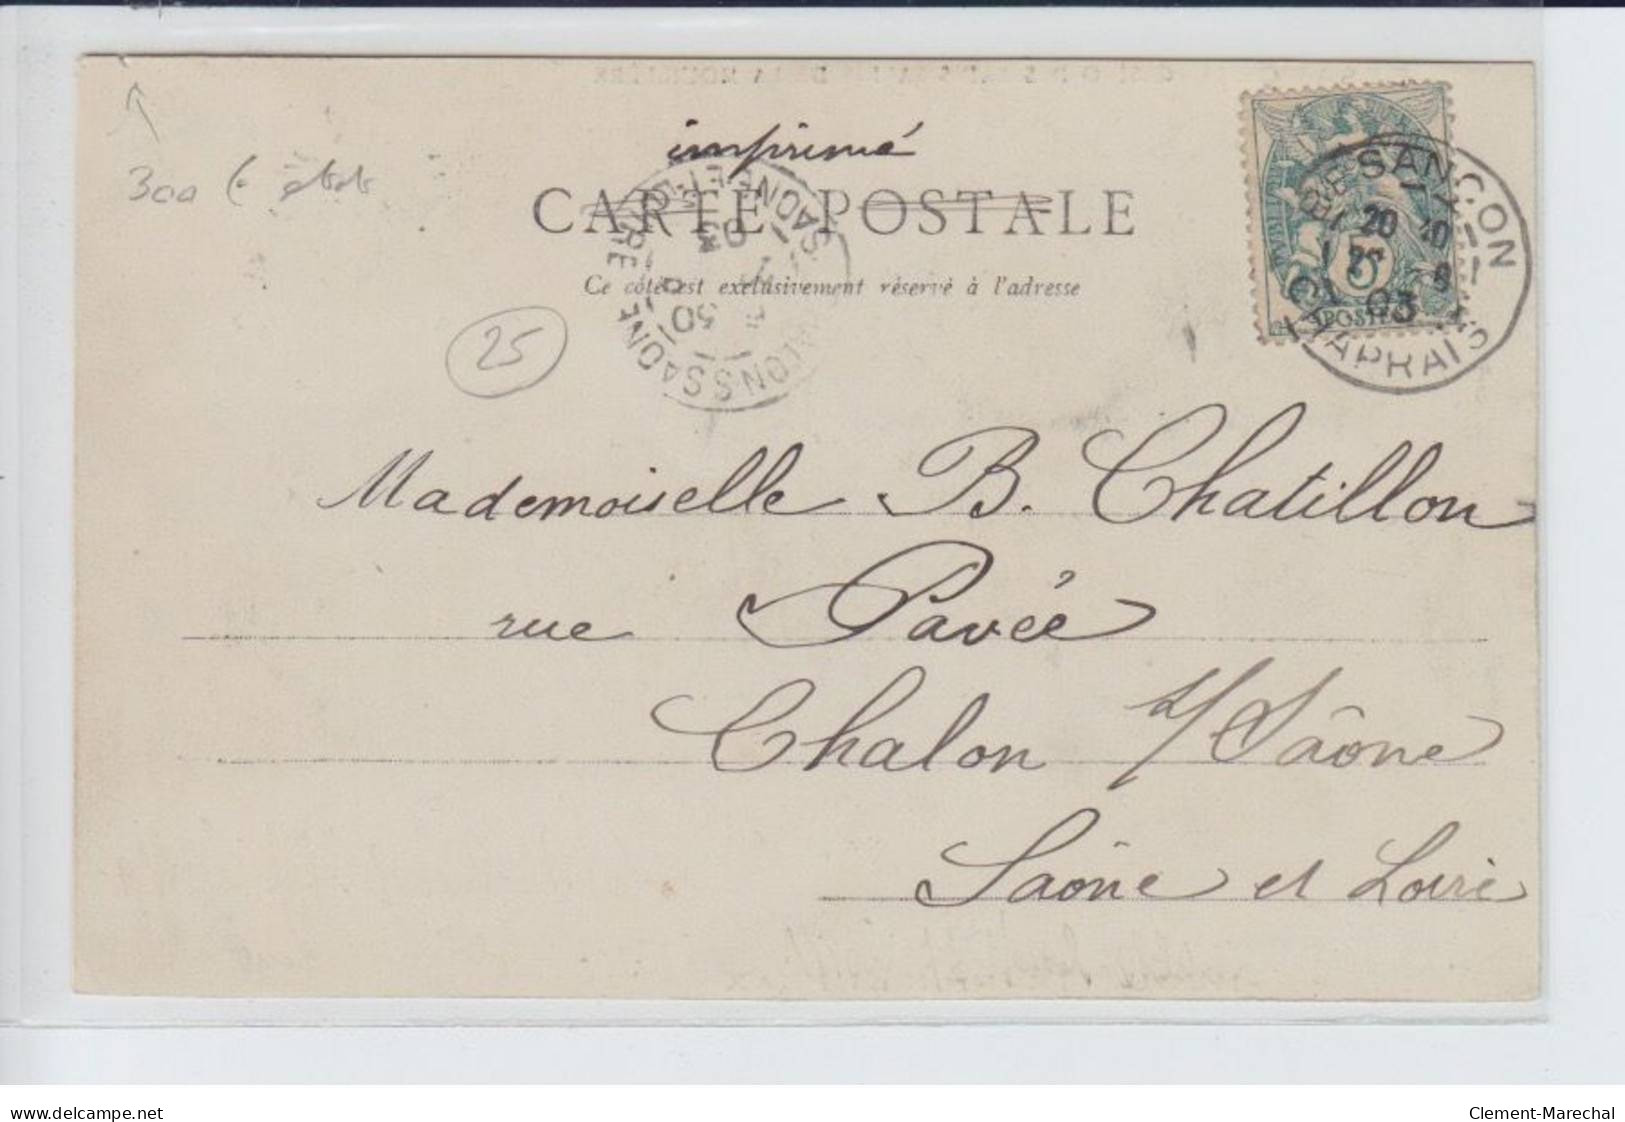 imprimé
CARTE POSTALE
Ce côté est exclusivement réservé à l'adresse
300 €
25
BESANÇON
20
03
CHAPRAIS
5
POSTES
CHALON-S-SAONE
SAONE-ET-LOIRE
30
03
Mademoiselle B. Chatillon
rue Pavée
Chalon s/Saône
Saône et Loire
www.delcampe.net
Clement-Marechal